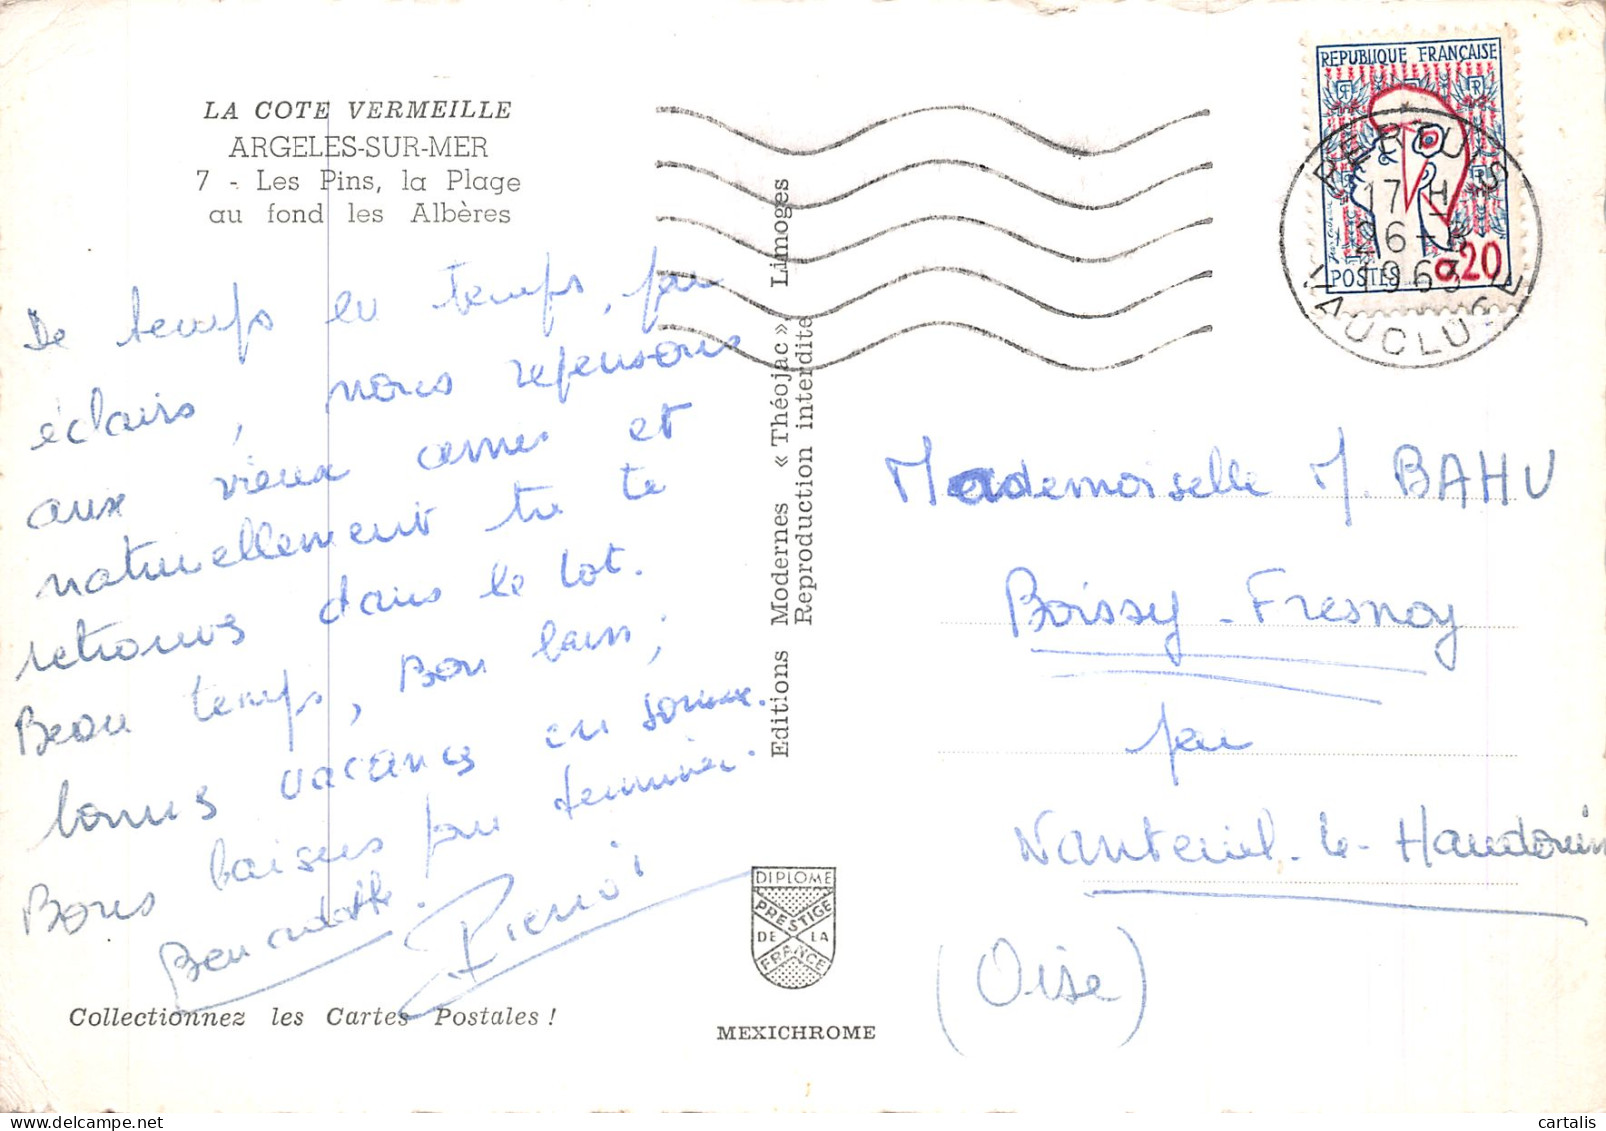 LA COTE VERMEILLE
ARGELES-SUR-MER
7 - Les Pins, la Plage
au fond les Albères
De temps en temps, par
éclairs, nous repensons
aux vieux amis et
naturellement tu te
retrouves dans le lot.
Beau temps, Bon bain,
bonnes vacances en somme.
Bons baisers pour terminer.
Bernadette. Pierrot
Collectionnez les Cartes Postales !
Editions Modernes « Théojac » Limoges
Reproduction interdite
DIPLOME
PRESTIGE
DE LA
FRANCE
MEXICHROME
REPUBLIQUE FRANÇAISE
RF
POSTES 0,20
PERTUIS
17 H
1963
VAUCLUSE
Mademoiselle M. BAHU
Boissy-Fresnoy
par
Nanteuil-le-Haudouin
(Oise)
cartalis